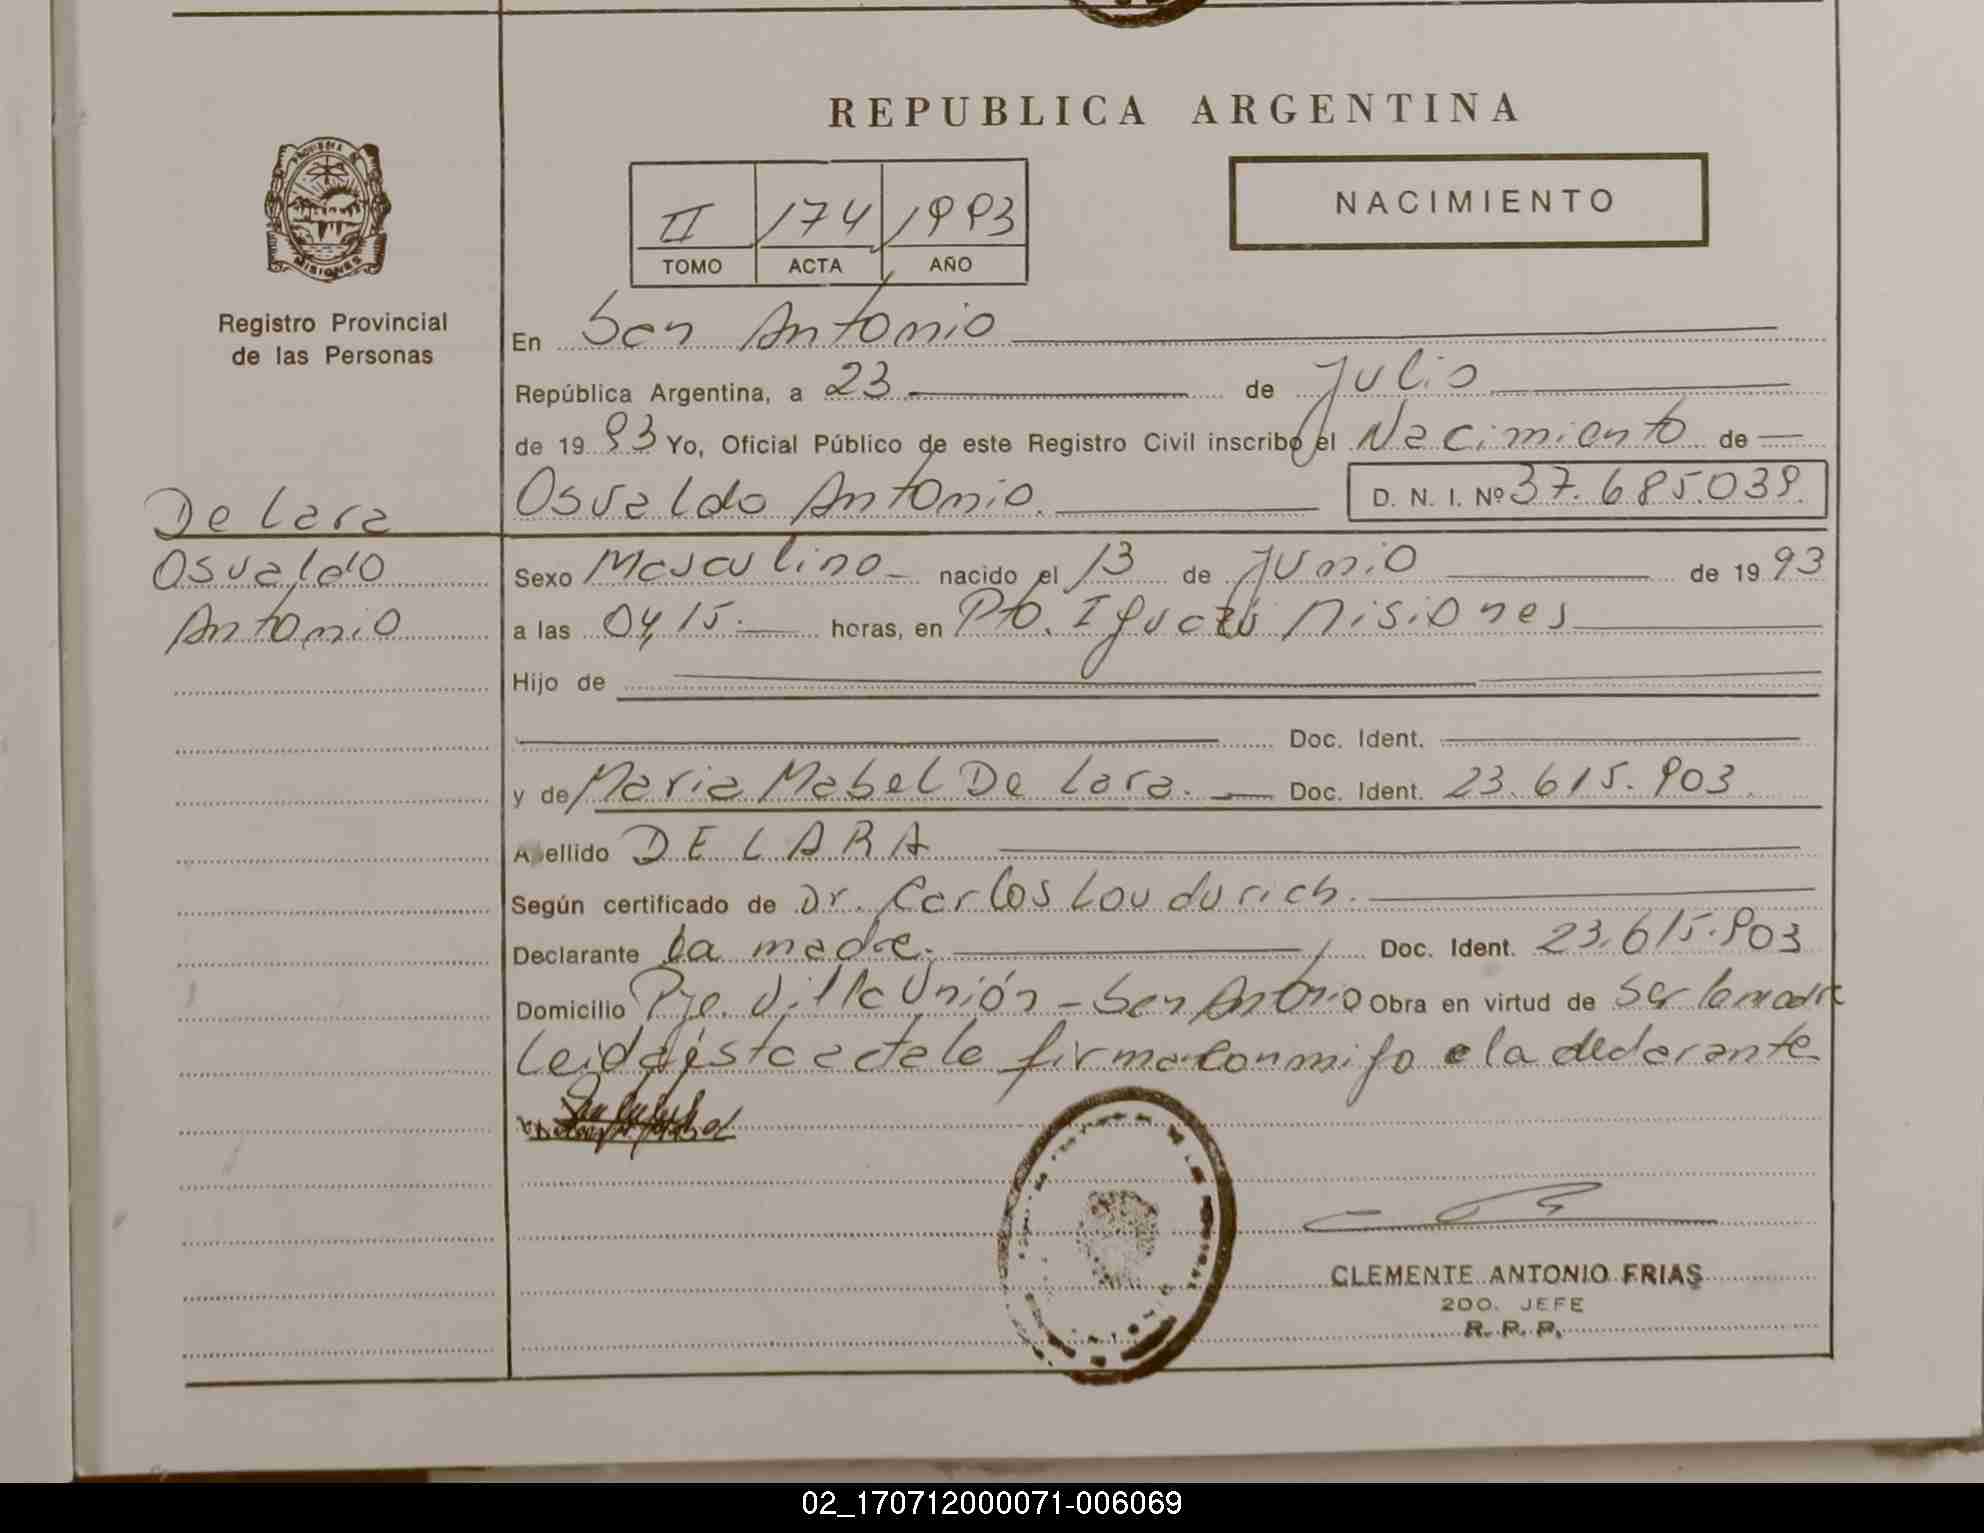 REPUBLICA ARGENTINA
PROVINCIA DE
MISIONES
Registro Provincial
de las Personas
II 174 1993
TOMO ACTA AÑO
NACIMIENTO
En San Antonio
República Argentina, a 23 de Julio
de 1993 Yo, Oficial Público de este Registro Civil inscribo el Nacimiento de
Osvaldo Antonio. D. N. I. Nº 37.685.039.
De Lara
Osvaldo
Antonio
Sexo Masculino nacido el 13 de Junio de 1993
a las 04,15.- horas, en Pto. Iguazú Misiones
Hijo de
Doc. Ident.
y de Maria Mabel De Lara. Doc. Ident. 23.615.903.
Apellido DE LARA
Según certificado de Dr. Carlos Loudurich.
Declarante la madre. Doc. Ident. 23.615.903
Domicilio Pje. Villa Unión - San Antonio Obra en virtud de ser la madre
Leida ésta acta la firma conmigo la declarante
CLEMENTE ANTONIO FRIAS
2DO. JEFE
R. P. P.
02_170712000071-006069